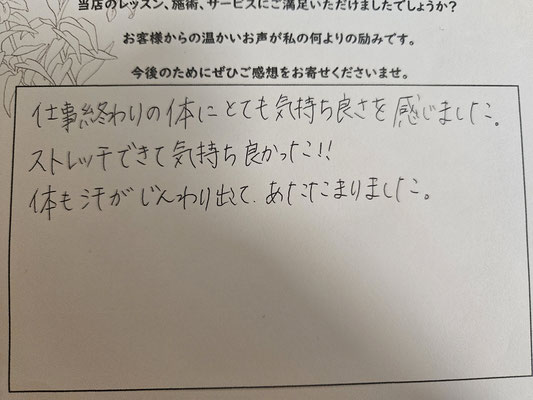 当店のレッスン、施術、サービスにご満足いただけましたでしょうか?
お客様からの温かいお声が私の何よりの励みです。
今後のためにぜひご感想をお寄せくださいませ。
仕事終わりの体にとても気持ち良さを感じました。
ストレッチできて気持ち良かった!!
体も汗がじんわり出て、あたたまりました。